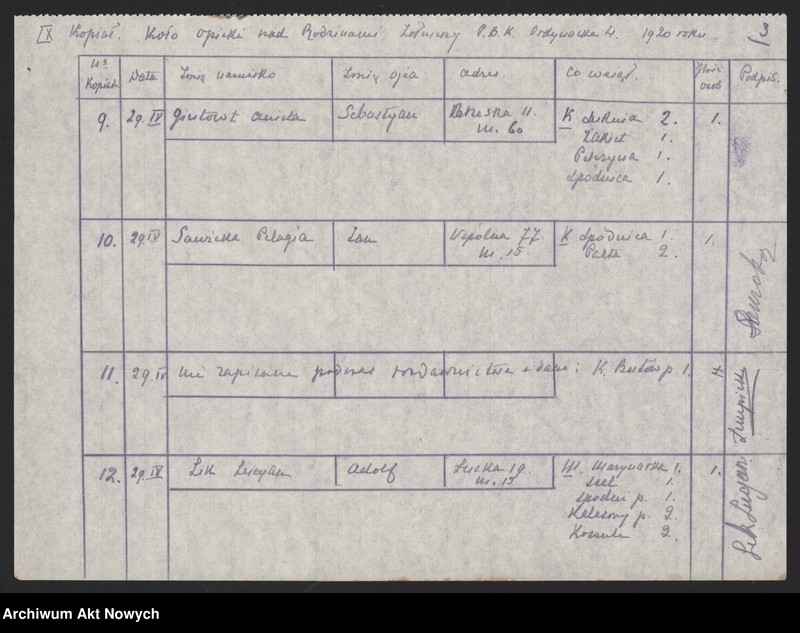 IX Kopiał. Koło Opieki nad Rodzinami Żołnierzy P.B.K. Ordynacka 4. 1920 roku. 13
Nº Kopiał. Data Imię nazwisko Imię ojca adres. Co wziął. Ilość osób Podpis.
9. 29. IV Gintowt Aniela Sebastyan 11. m. 60 K 2. 1.
Żakiet 1.
Peleryna 1.
Spódnica 1.
10. 29 IV Sawicka Pelagia Jan Wspólna 77. m. 15 K Spódnica 1. 1.
Palta 2.
11. 29. IV nie zapisane podczas K. Butów p. 1. 4
12. 29. IV Lik Lucyan Adolf Łucka 19. m. 15 M. Marynarka 1. 1.
1.
Spodni p. 1.
Kalesony p. 2.
Koszule 2.
Lik Lucyan
Archiwum Akt Nowych